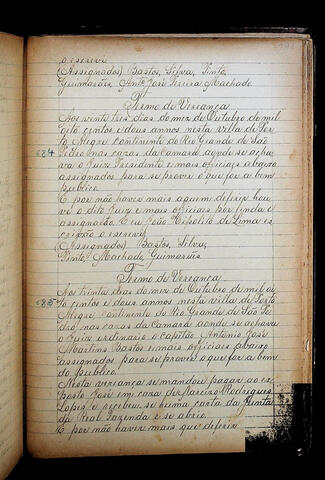 o escrevi
(Assignados) Bastos, Silva, Pinto,
Guimarães, Antº José Teixeira Machado
Termo de Vereança
Aos vinte três dias do mez de Outubro de mil
oito centos e dous annos nesta villa de Por-
to Alegre continente do Rio Grande de São
684
Pedro nas casas da Camara aonde se acha-
va o Juiz Presidente e mais officiaes abaixo
assignados para se prover o que for a bem
publico.
E por não haver mais a quem deferir hou-
ve o dito Juiz e mais officiaes por finda e
assignarão. Eu João Hipolito de Lima es-
crivão o escrevi
(Assignados) Bastos, Silva,
Pinto, Machado, Guimarães
Termo de Vereança
Aos trinta dias do mez de Outubro de mil oi-
685
to centos e dous annos nesta villa de Porto
Alegre, continente do Rio Grande de São Pe-
dro, nas casas da Camara aonde se achava
o Juiz ordinario o capitão Antonio José
Martins Bastos e mais officiaes abaixo
assignados para se prover o que for a bem
do publico.
Nesta vereança se mandou pagar ao ex-
posto José em casa de Rodrigues
Lopes e recebeu se huma carta da Junta
da Real Fazenda e se abrio.
E por não haver mais que deferir